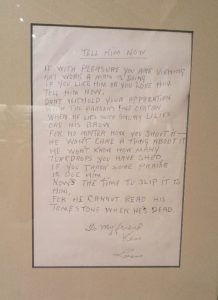 TELL HIM NOW
IF WITH PLEASURE YOU ARE VIEWING
ANY WORK A MAN IS DOING
IF YOU LIKE HIM OR YOU LOVE HIM
TELL HIM NOW.
DON'T WITHOLD YOUR APPROBATION
TILL THE PARSONS MAKE ORATION
WHEN HE LIES WITH SNOWY LILLIES
ON HIS BROW
FOR NO MATTER HOW YOU SHOUT IT—
HE WON'T CARE A THING ABOUT IT
HE WON'T KNOW HOW MANY
TEARDROPS YOU HAVE SHED,
IF YOU THINK SOME PRAISE
IS DUE HIM
NOW'S THE TIME TO SLIP IT TO
HIM
FOR HE CANNOT READ HIS
TOMBSTONE WHEN HE'S DEAD
To my friend